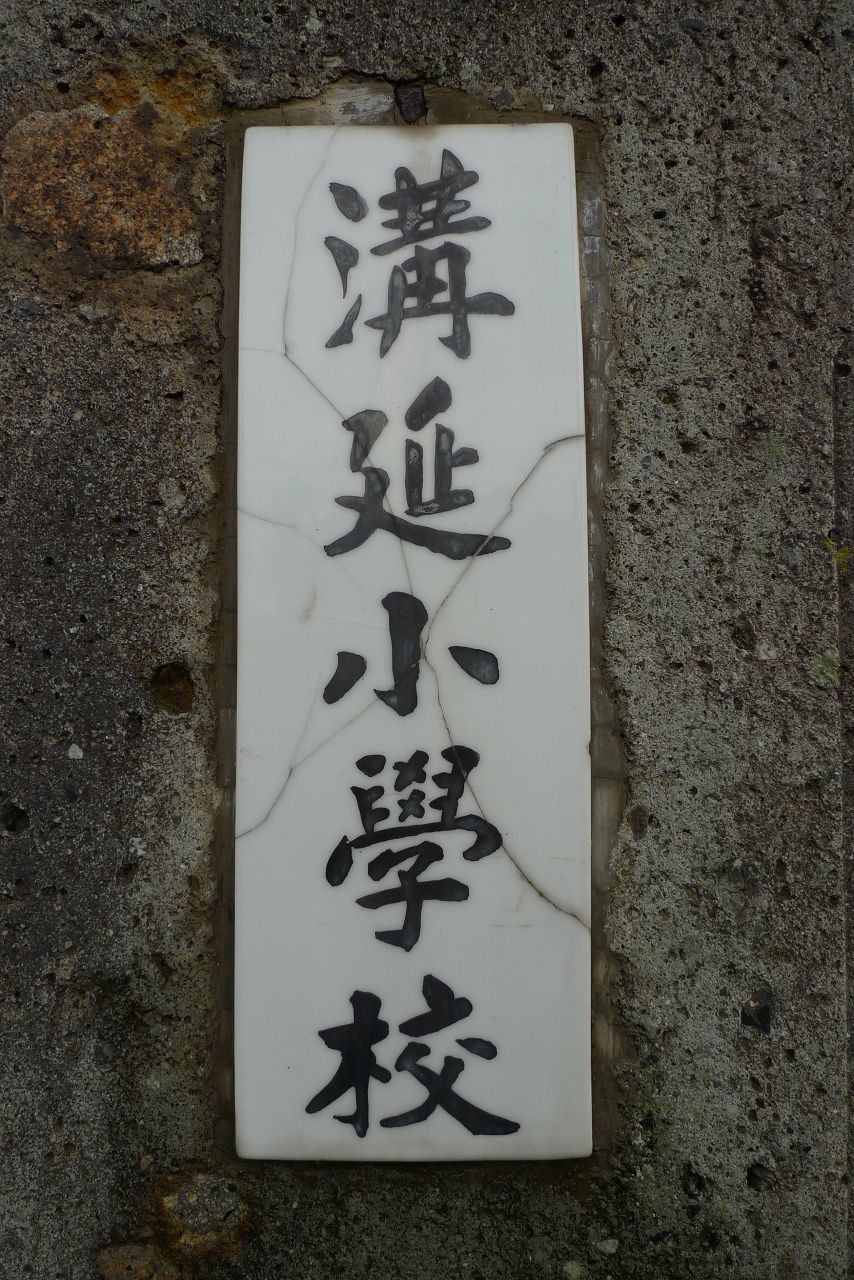 溝延小學校